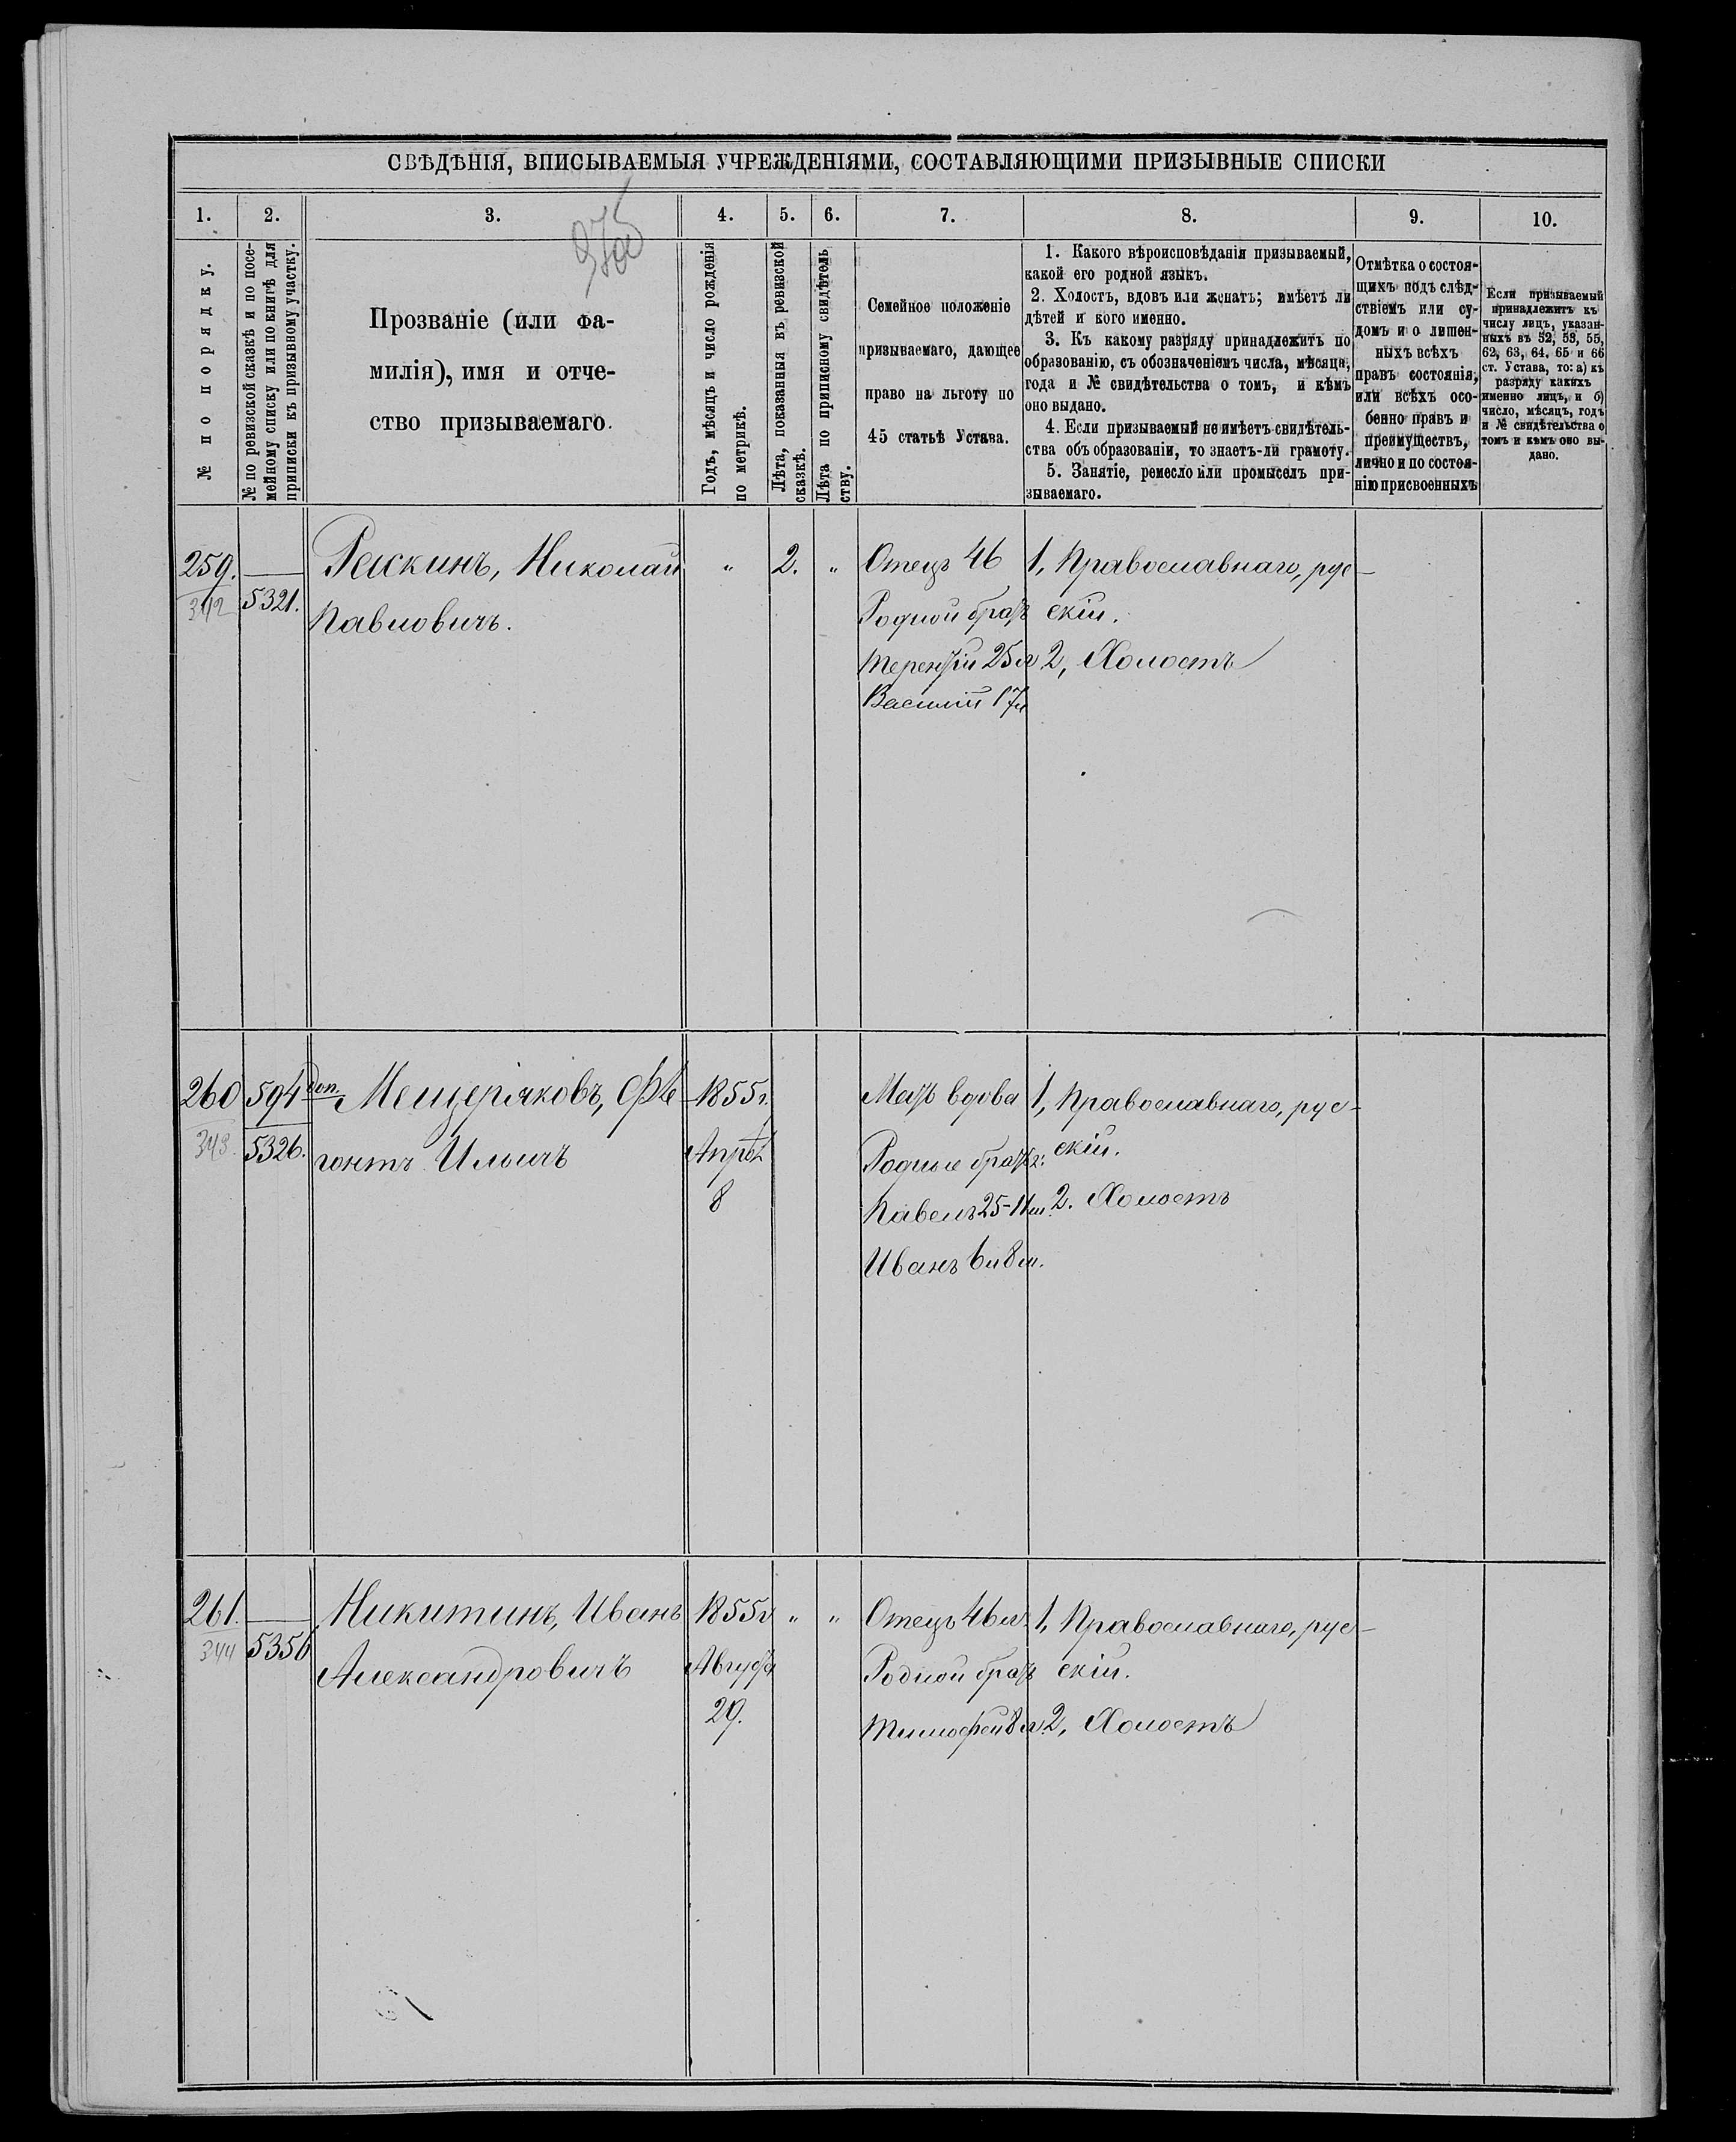 СВѢДѢНІЯ, ВПИСЫВАЕМЫЯ УЧРЕЖДЕНІЯМИ, СОСТАВЛЯЮЩИМИ ПРИЗЫВНЫЕ СПИСКИ
1. 2. 3. 4. 5. 6. 7. 8. 9. 10.
№ по порядку.
№ по ревизской сказкѣ и по посе-
мейному списку или по книгѣ для
приписки къ призывному участку.
Прозваніе (или фа-
милія), имя и отче-
ство призываемаго.
Годъ, мѣсяцъ и число рожденія
по метрикѣ.
Лѣта, показанныя въ ревизской
сказкѣ.
Лѣта по приписному свидѣтель
ству.
Семейное положеніе
призываемаго, дающее
право на льготу по
45 статьѣ Устава.
1. Какого вѣроисповѣданія призываемый,
какой его родной языкъ.
2. Холостъ, вдовъ или женатъ; имѣетъ ли
дѣтей и кого именно.
3. Къ какому разряду принадлежитъ по
образованію, съ обозначеніемъ числа, мѣсяца,
года и № свидѣтельства о томъ, и кѣмъ
оно выдано.
4. Если призываемый не имѣетъ свидѣтель-
ства объ образованіи, то знаетъ-ли грамоту.
5. Занятіе, ремесло или промыселъ при-
зываемаго.
Отмѣтка о состоя-
щихъ подъ слѣд-
ствіемъ или су-
домъ и о лишен-
ныхъ всѣхъ
правъ состоянія,
или всѣхъ осо-
бенно правъ и
преимуществъ,
лично и по состоя-
нію присвоенныхъ
Если призываемый
принадлежитъ къ
числу лицъ, указан-
ныхъ въ 52, 53, 55,
62, 63, 64, 65 и 66
ст. Устава, то: а) къ
разряду какихъ
именно лицъ, и б)
число, мѣсяцъ, годъ
и № свидѣтельства о
томъ и кѣмъ оно вы-
дано.
259. Николай „ 2. „ Отецъ 46 1, Православнаго, рус-
342 5321. Павловичъ. Родной братъ скій.
Терентій 25 л 2, Холостъ
Василій 17 л
260 594 доп. Мещеряковъ, Фле 1855 г. Мать вдова 1, Православнаго, рус-
343. 5326. гонтъ Ильичъ Апрѣл Родные братья: скій.
8 Павелъ 25-11 2. Холостъ
Иванъ 6 и 8
261. Никитинъ, Иванъ 1855 г „ „ Отецъ 46 л. 1, Православнаго, рус-
344 5356 Александровичъ Августа Родной братъ скій.
29. Тимофей 8 л. 2, Холостъ